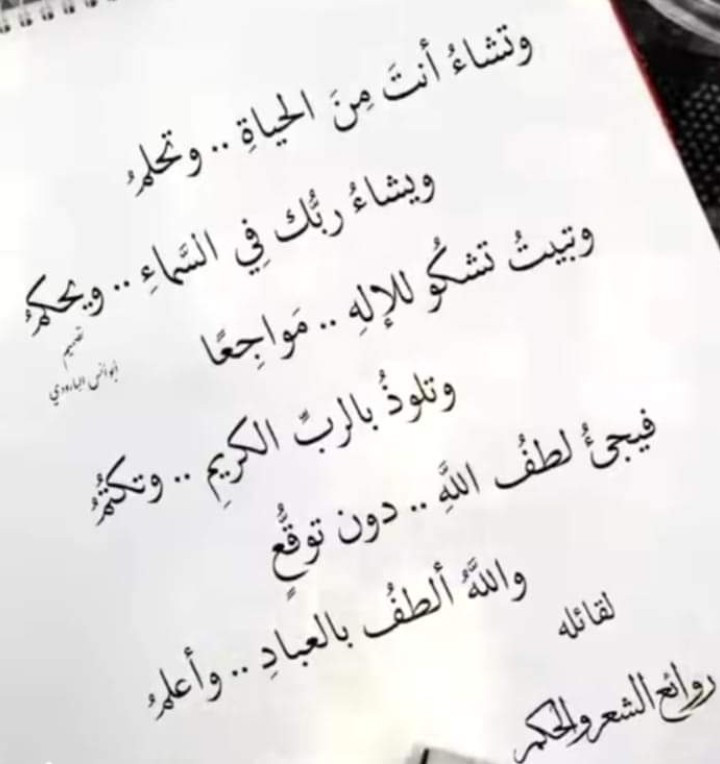 وتشاءُ أنتَ مِنَ الحياةِ .. وتحلمُ
ويشاءُ ربُّك فِي السَّماءِ .. ويحكمُ
وتبيتُ تشكُو للإلهِ .. مَواجِعًا
وتلوذُ بالربِّ الكريمِ .. وتكتُمُ
فيجئُ لطفُ اللَّهِ .. دون توقُّعٍ
واللَّهُ ألطفُ بالعبادِ .. وأعلمُ
لقائله
روائع الشعر والحكم
تصميم
أبو أنس البارودي